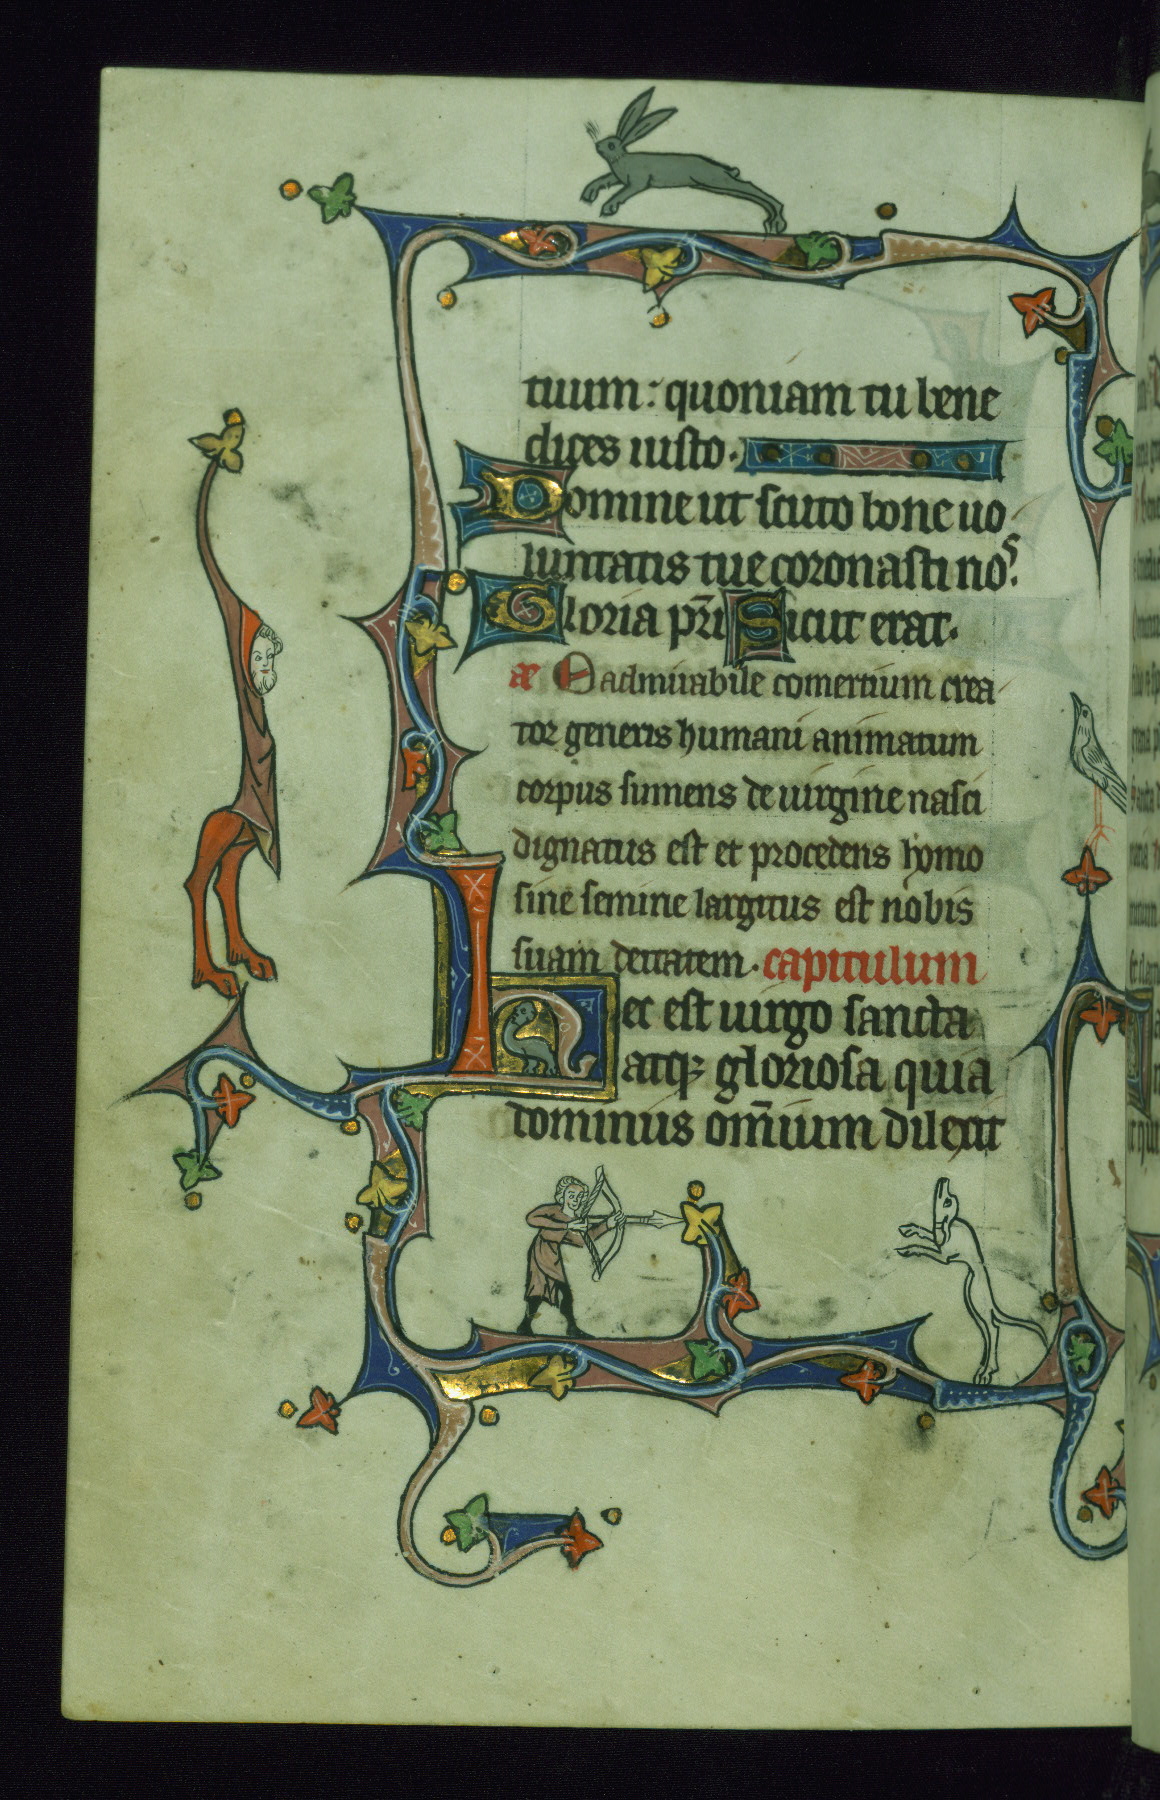 tuum: quoniam tu bene
dices iusto.
Domine ut scuto bone uo
luntatis tue coronasti nos.
Gloria pri Sicut erat.
æ O admirabile comertium crea
tor generis humani animatum
corpus sumens de uirgine nasci
dignatus est et procedens homo
sine semine largitus est nobis
suam deitatem. capitulum
Hec est uirgo sancta
atq; gloriosa quia
dominus om̄ium dilexit